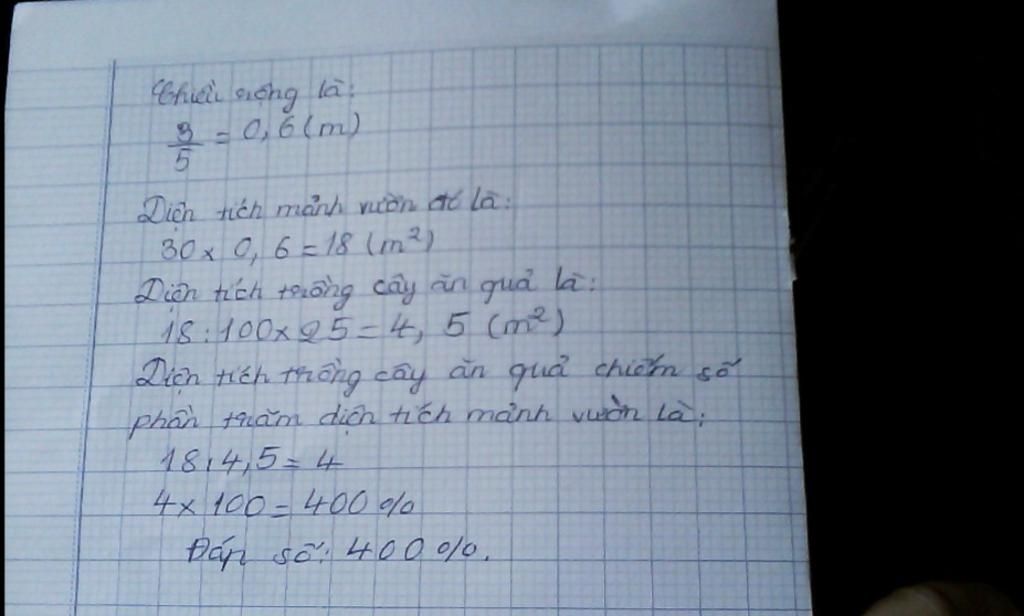 Chiều rộng là:
3/5 = 0,6 (m)
Diện tích mảnh vườn đó là:
30 x 0,6 = 18 (m²)
Diện tích trồng cây ăn quả là:
18 : 100 x 25 = 4,5 (m²)
Diện tích trồng cây ăn quả chiếm số
phần trăm diện tích mảnh vườn là:
18 : 4,5 = 4
4 x 100 = 400 %
Đáp số: 400 %.